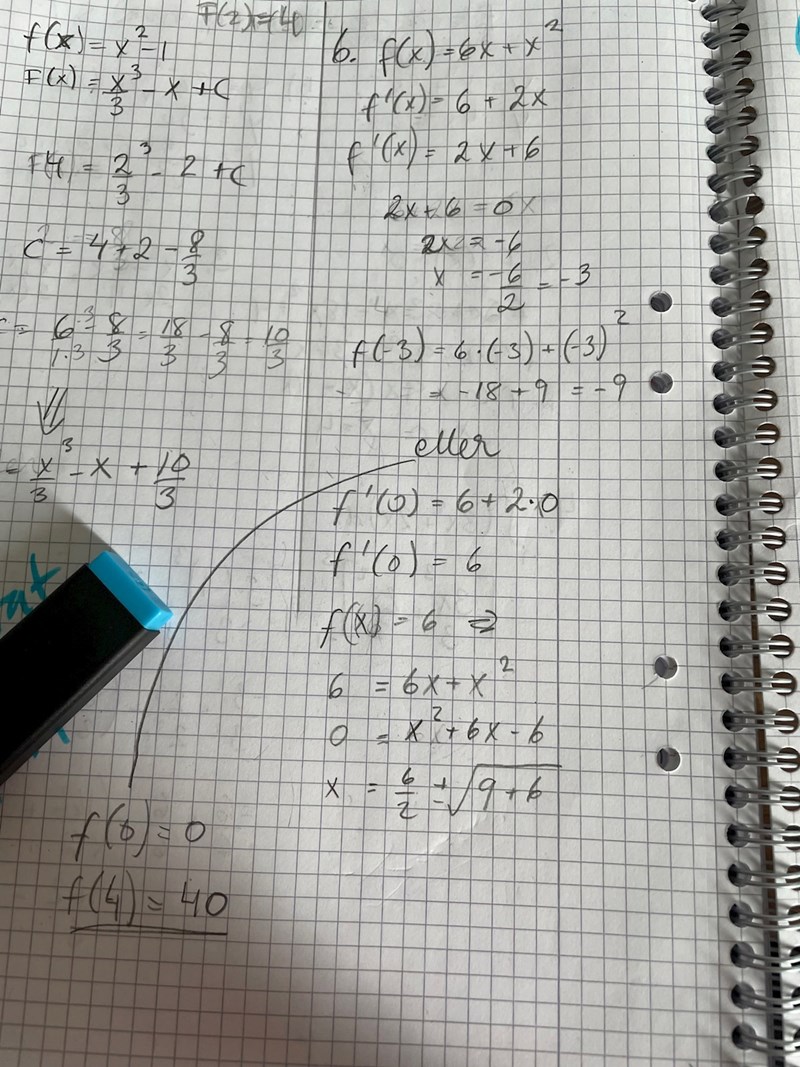 f(x) = x² - 1
F(x) = x³/3 - x + C
= 2³/3 - 2 + C
C = 4 + 2 - 8/3
= 6·3/1·3 - 8/3 = 18/3 - 8/3 = 10/3
⇓
= x³/3 - x + 10/3
6. f(x) = 6x + x²
f'(x) = 6 + 2x
f'(x) = 2x + 6
2x + 6 = 0
2x = -6
x = -6/2 = -3
f(-3) = 6·(-3) + (-3)²
= -18 + 9 = -9
eller
f'(0) = 6 + 2·0
f'(0) = 6
f(x) = 6 ⇒
6 = 6x + x²
0 = x² + 6x - 6
x = 6/2 ± √(9+6)
f(0) = 0
f(4) = 40